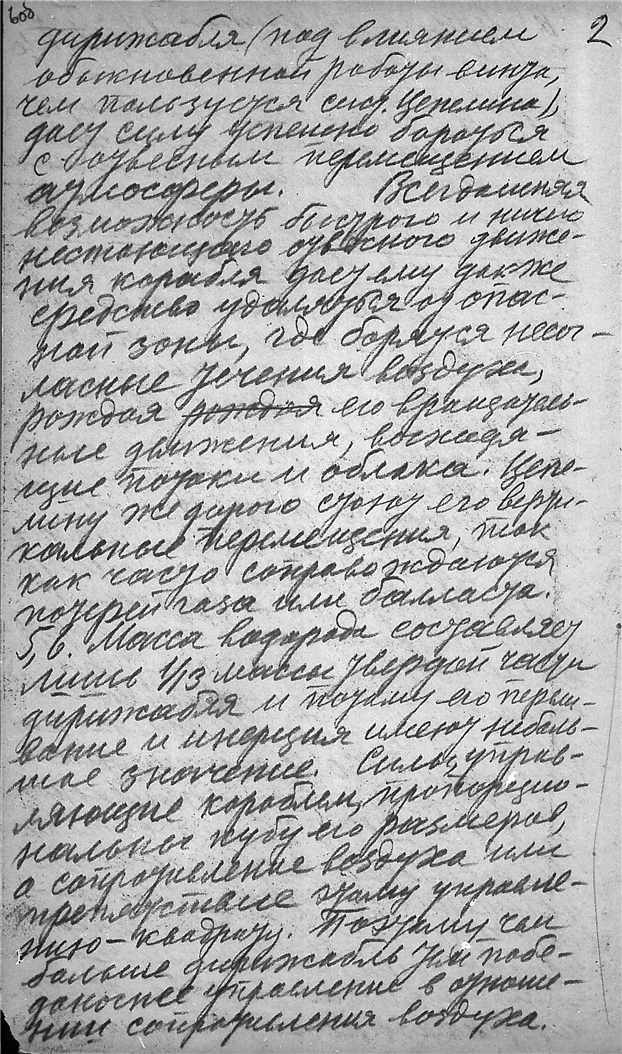 воб
2
дирижабля (под влиянием
обыкновенной работы винта,
чем пользуется сист. Цепелина),
даст силу успешно бороться
с отвесным перемещением
атмосферы. Всегдашняя
возможность быстрого и ничего
нестоющего отвесного движе-
ния корабля даст ему также
средство удаляться от опас-
ной зоны, где борятся несог-
ласные течения воздуха,
рождая рождая его вращатель-
ные движения, восходя-
щие потоки и облака. Цепе-
лину же дорого стоют его верти-
кальные перемещения, так
как часто сопровождаются
потерей газа или балласта.
5, в. Масса водорода составляет
лишь 1/13 массы твердой части
дирижабля и потому его
и инерция имеют неболь-
шое значение. Силы, управ-
ляющие кораблем, пропорцио-
нальны кубу его размеров,
а сопротивление воздуха или
препятствие этому управле-
нию – квадрату. Поэтому чем
больше дирижабль тем побе-
доноснее управление в отноше-
нии сопротивления воздуха.